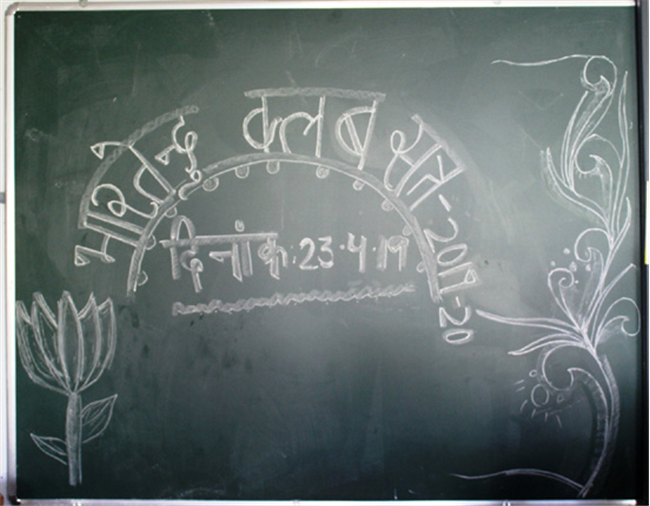 भारतेन्दु क्लब सत्र-2019-20
दिनांक·23·4·19